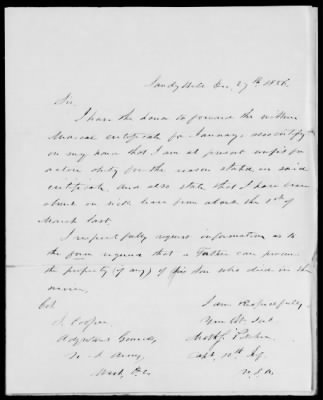 Sandy Hill Dec. 27th 1856.
Sir,
I have the honor to forward the within
Medical certificate for January, also certify
on my honor that I am at present unfit for
active duty for the reason stated in said
certificate. And also state that I have been
absent on sick leave from about the 1st of
March last.
I respectfully request information as to
the form required that a Father can procure
the property (if any) of his son who died in the
service,
Col I am Respectfully
S. Cooper Your Obt. Servt.
Adjutant General
U. S. Army, Capt. 10th Infy
Wash. D.C. U.S.A.